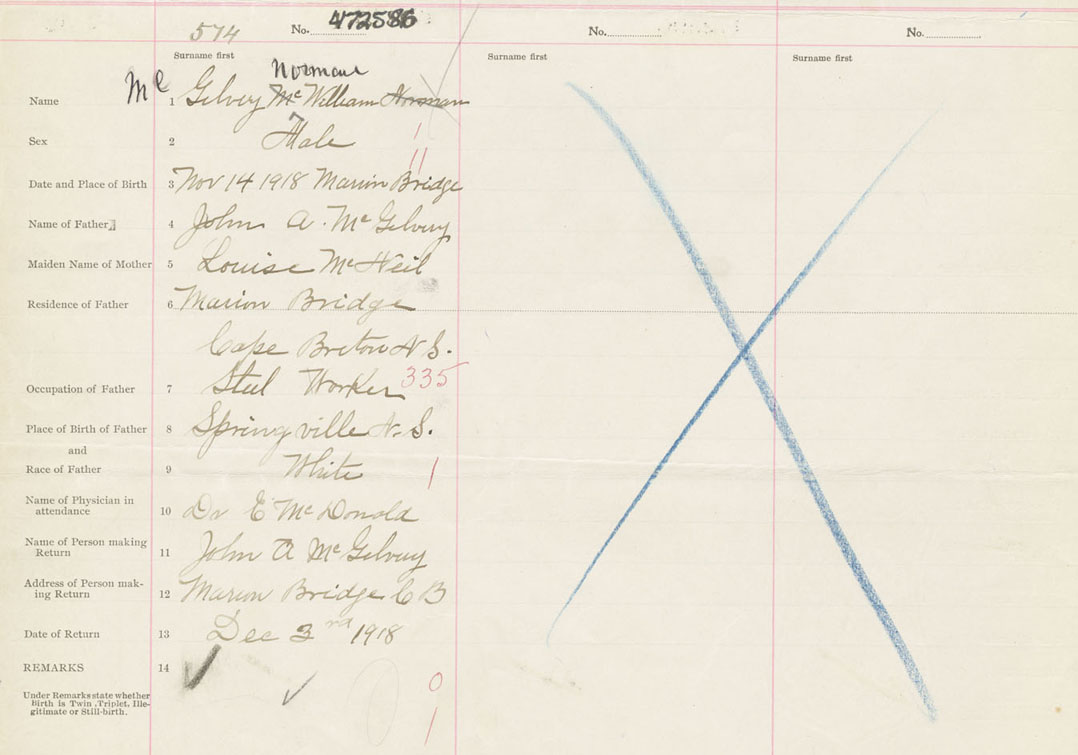 574 No. 472586 No. No.
Surname first Surname first Surname first
Normane
Name Mc 1 Gilvey Mc William Norman
Sex 2 Male 1
11
Date and Place of Birth 3 Nov 14 1918 Marion Bridge
Name of Father 4 John A. McGilvey
Maiden Name of Mother 5 Louise McNeil
Residence of Father 6 Marion Bridge
Cape Breton N S.
Occupation of Father 7 Steel Worker 335
Place of Birth of Father 8 Springville N. S.
and
Race of Father 9 White 1
Name of Physician in
attendance 10 Dr E McDonald
Name of Person making
Return 11 John A McGilvey
Address of Person mak-
ing Return 12 Marion Bridge C B
Date of Return 13 Dec 3rd 1918
REMARKS 14
0
Under Remarks state whether
Birth is Twin, Triplet, Ille-
gitimate or Still-birth. 1